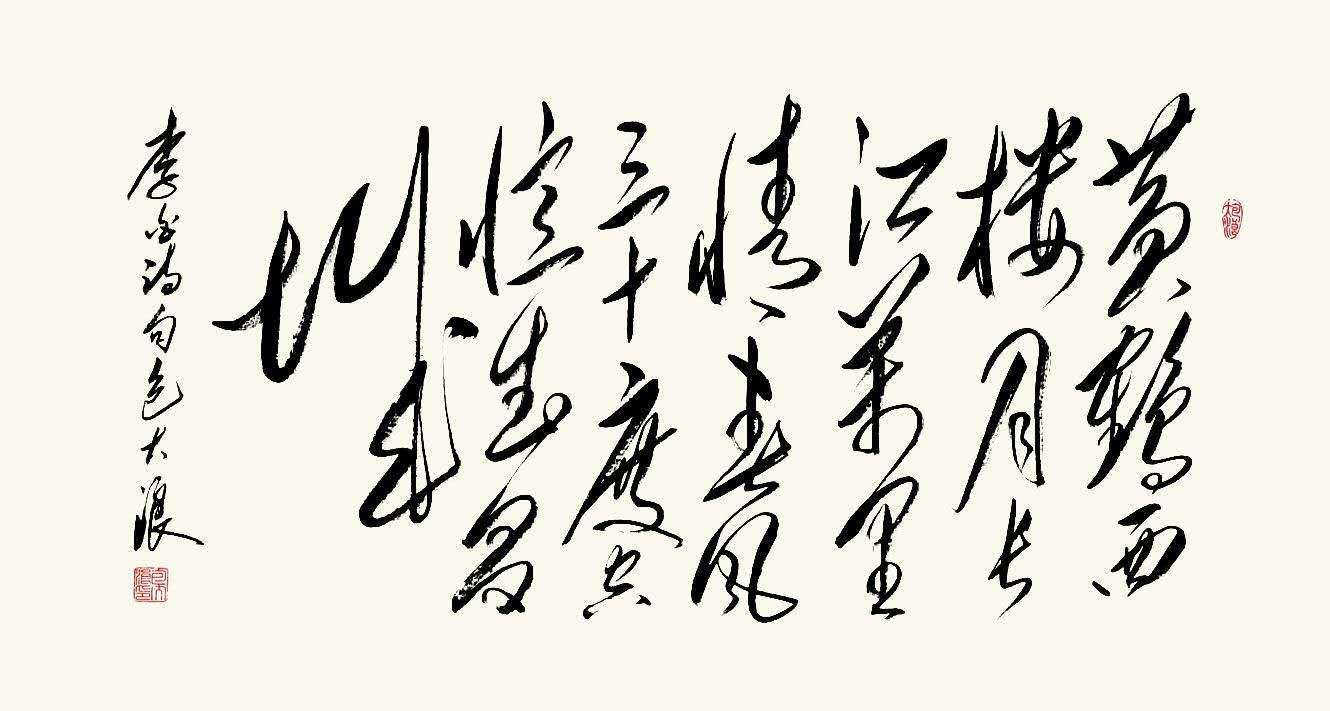 黄鹤西
楼月长
江萬里
情春风
三十度空
憶武昌
城
李白诗句包大浪